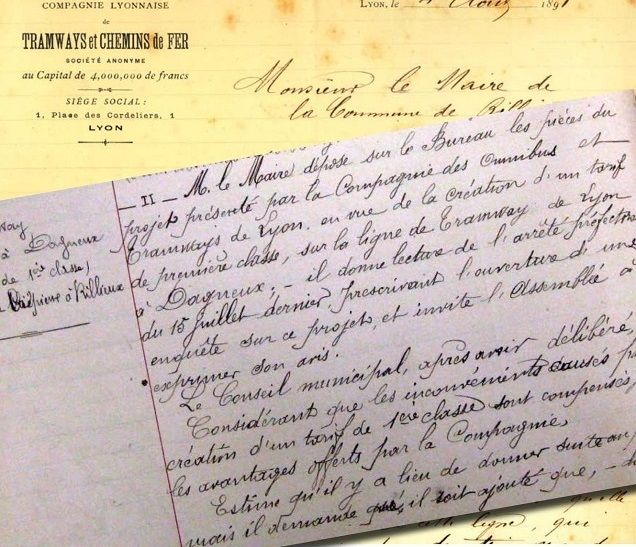 COMPAGNIE LYONNAISE
de
TRAMWAYS et CHEMINS de FER
SOCIÉTÉ ANONYME
au Capital de 4,000,000 de francs
SIÈGE SOCIAL:
1, Place des Cordeliers, 1
LYON
Lyon, le Août 189
Monsieur le Maire de
la Commune de Rilli
way
à Dagneux
de 1ère classe)
à Rillieux
_ II _ M. le Maire dépose sur le Bureau les pièces du
projet présenté par la Compagnie des Omnibus et
Tramways de Lyon, en vue de la création d'un tarif
de première classe, sur la ligne de Tramway de Lyon
à Dagneux; - il donne lecture de l'arrêté préfectora
du 15 Juillet dernier prescrivant l'ouverture d'une
enquête sur ce projet, et invite l'Assemblée à
exprimer son avis.
Le Conseil municipal, après avoir délibéré,
Considérant que les inconvénients causés p
création d'un tarif de 1ère classe sont compensés
les avantages offerts par la Compagnie,
Estime qu'il y a lieu de donner suite au
mais il demande il soit ajouté que, -
ligne, qui